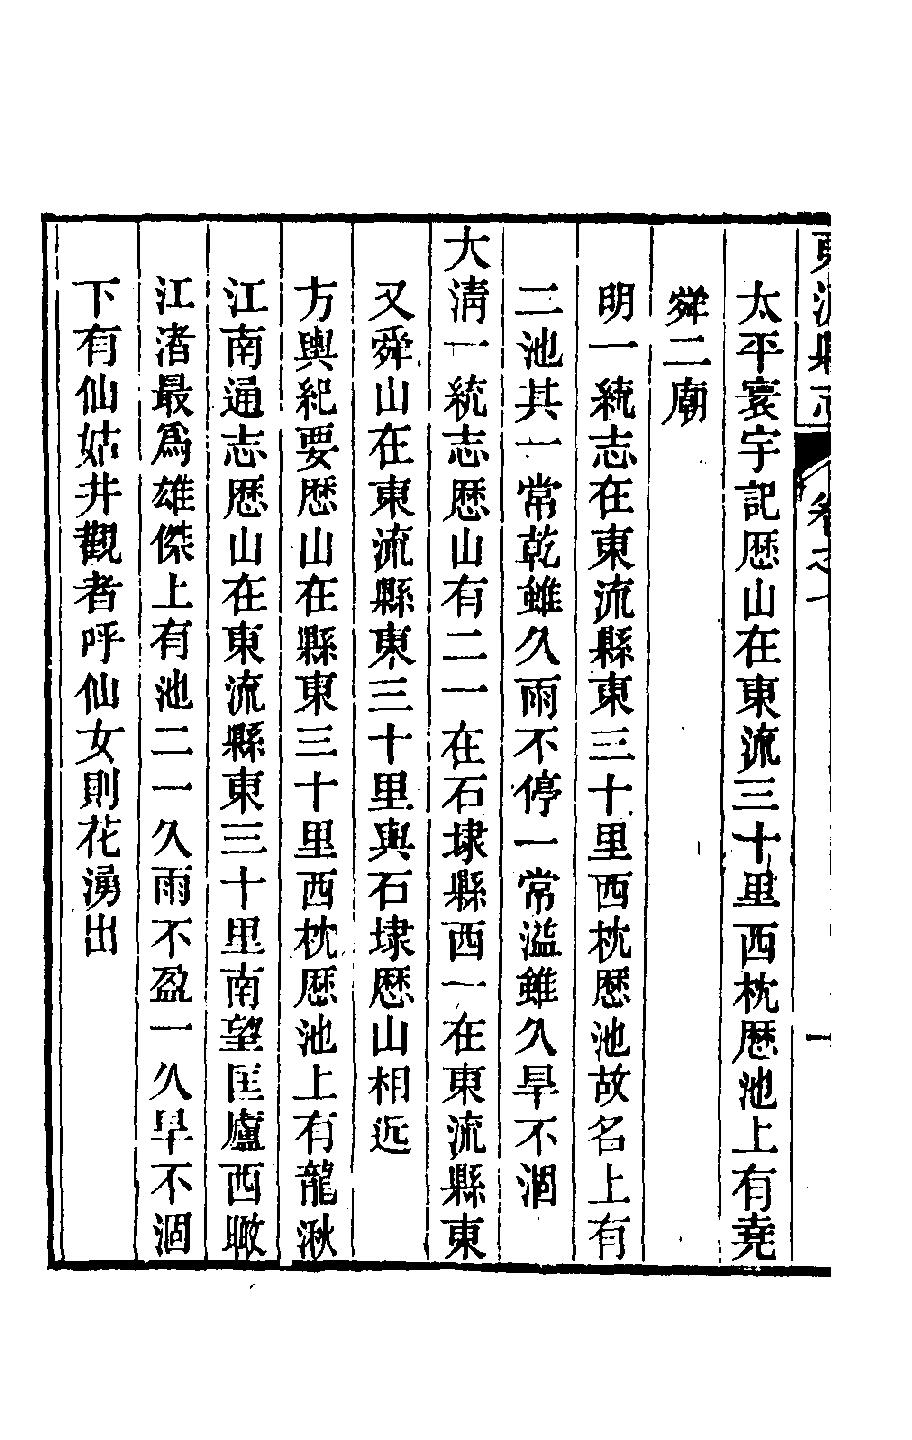 東流縣志 卷之一 一
太平寰宇記厯山在東流三十里西枕厯池上有堯
舜二廟
明一統志在東流縣東三十里西枕厯池故名上有
二池其一常乾雖久雨不停一常溢雖久旱不涸
大清一統志厯山有二一在石埭縣西一在東流縣東
又舜山在東流縣東三十里與石埭厯山相近
方輿紀要厯山在縣東三十里西枕厯池上有龍湫
江南通志厯山在東流縣東三十里南望匡廬西瞰
江渚最爲雄傑上有池二一久雨不盈一久旱不涸
下有仙姑井觀者呼仙女則花湧出